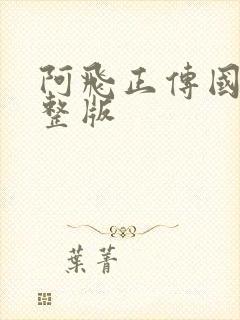 阿飛正傳國
整版
葉菁